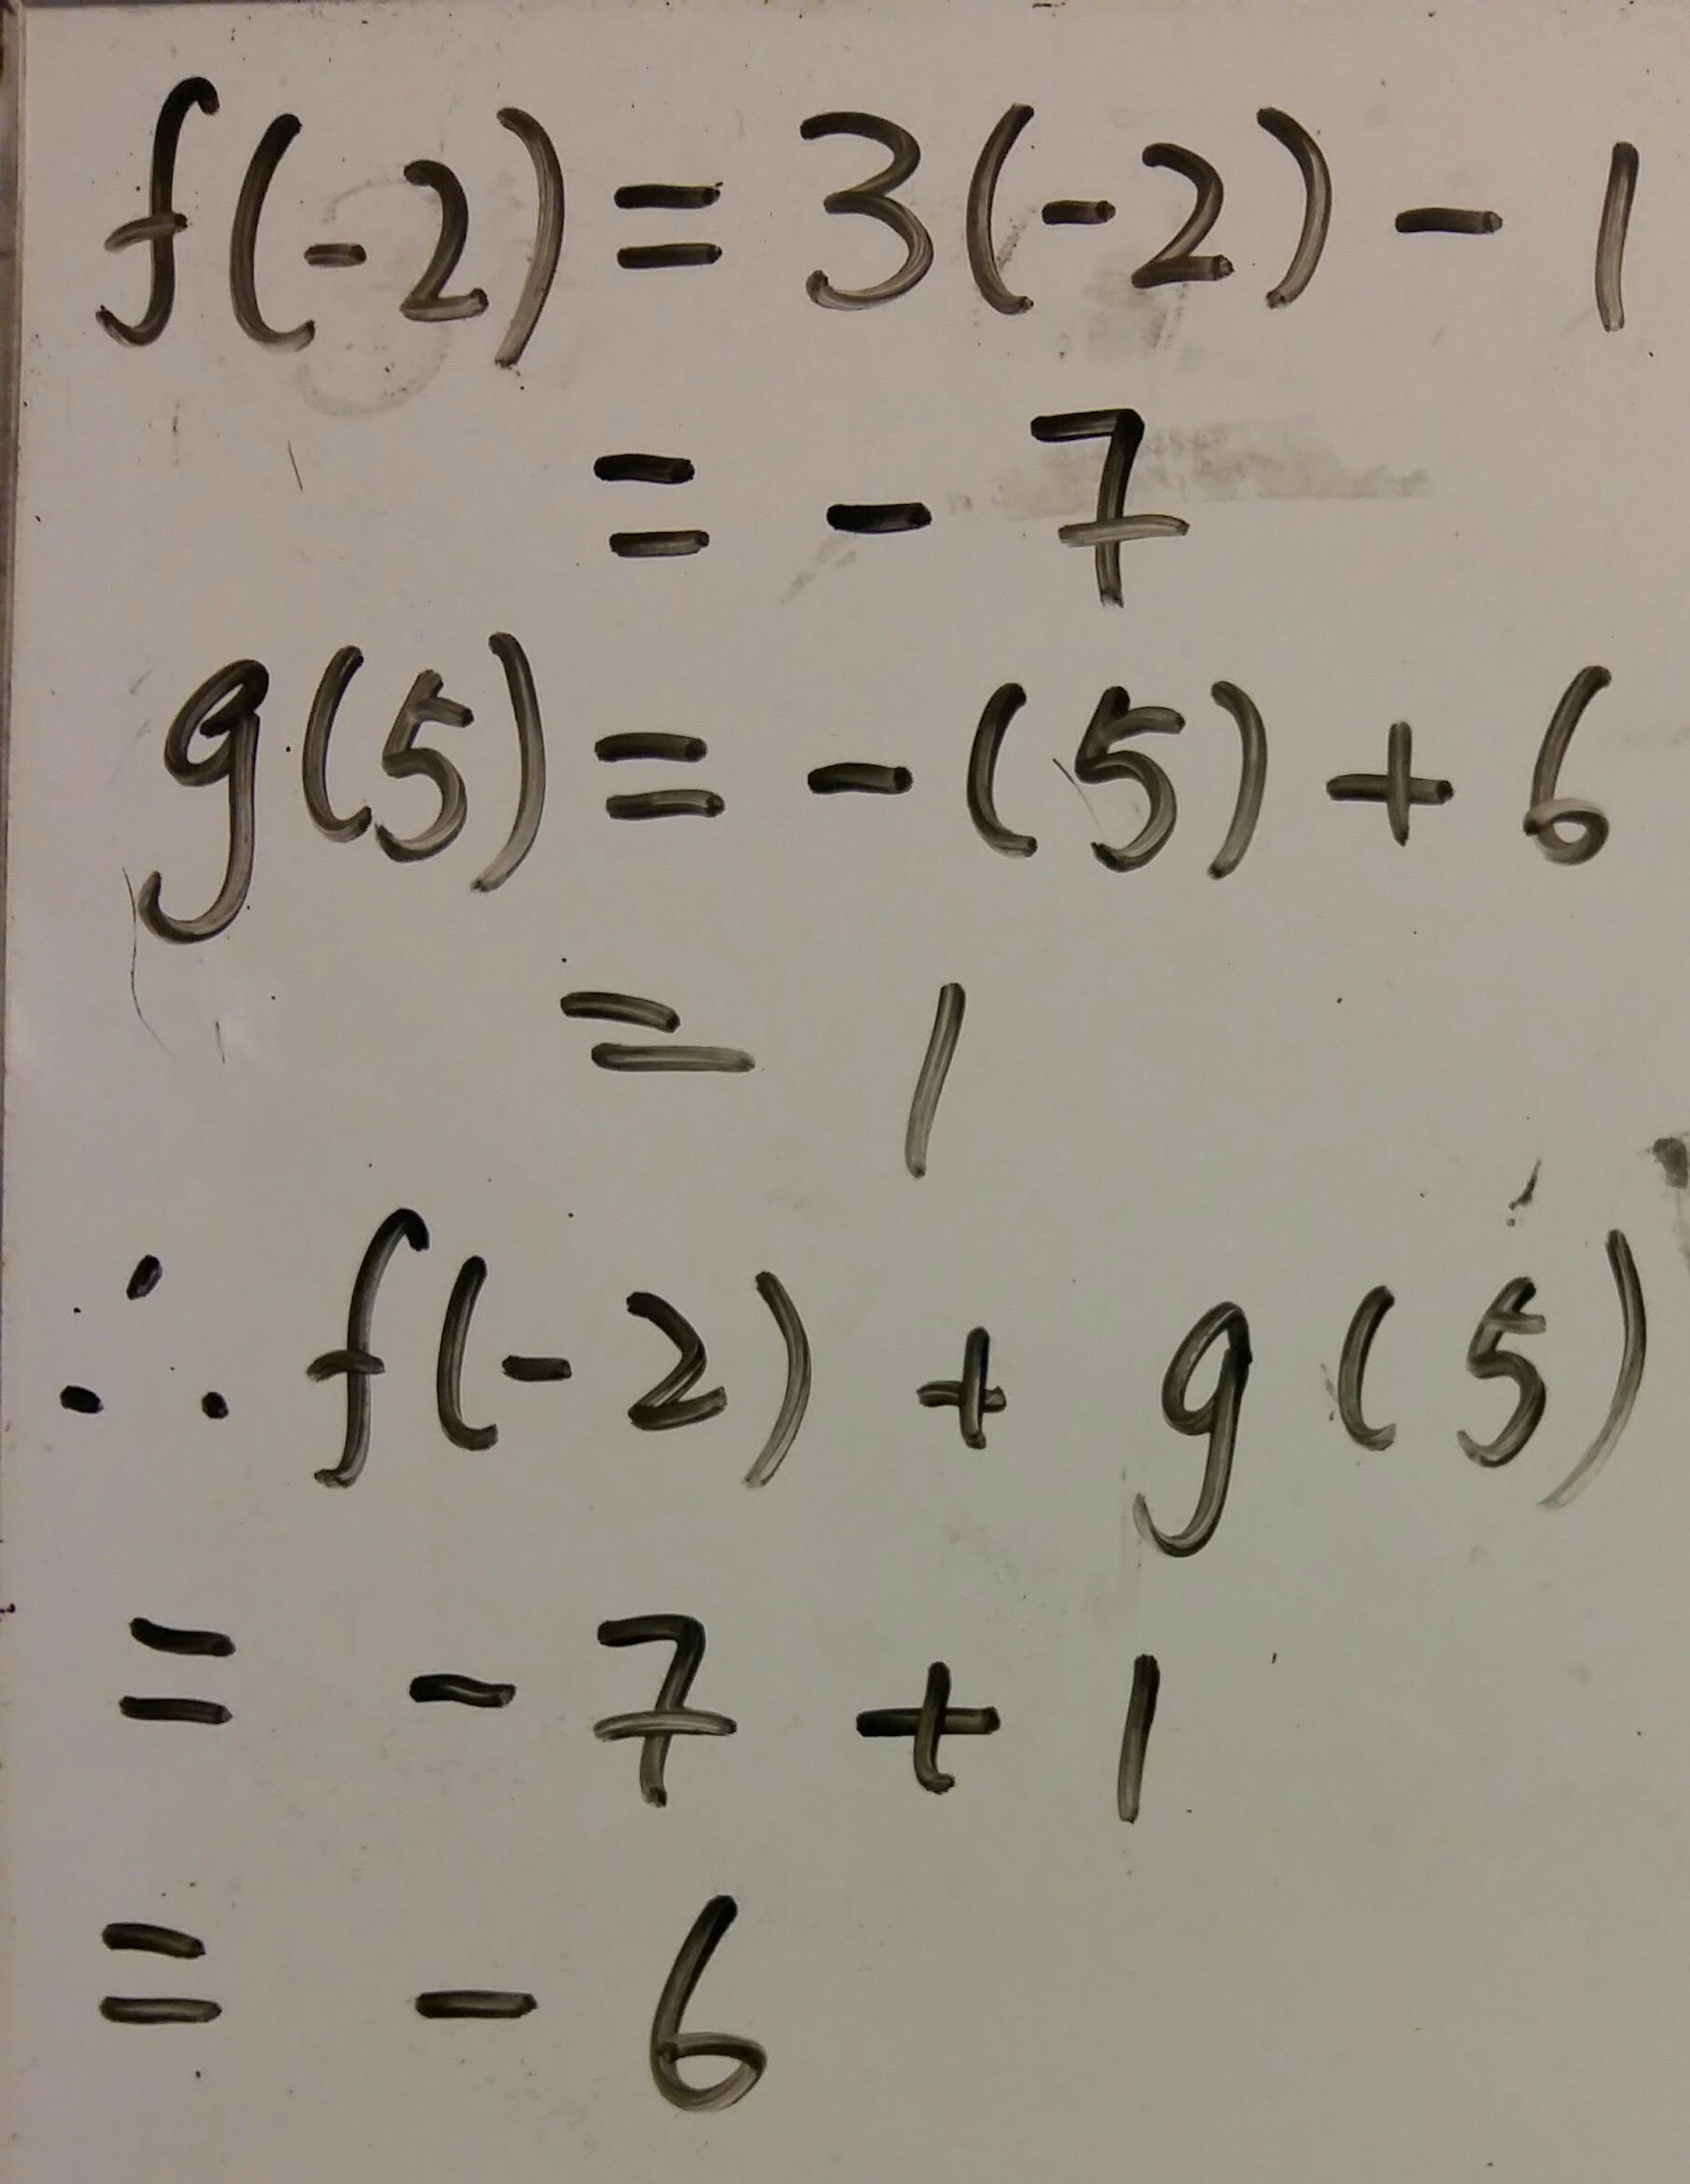 f(-2) = 3(-2) - 1
= - 7
g(5) = -(5) + 6
= 1
∴ f(-2) + g(5)
= - 7 + 1
= - 6